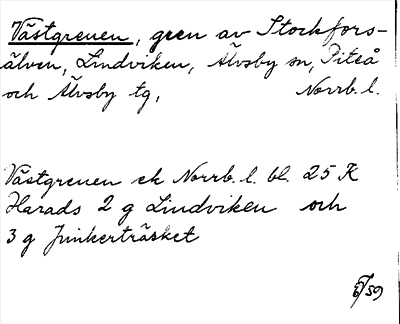 Västgrenen, gren av Stockfors-
älven, Lindviken, Älvsby sn, Piteå
och Älvsby tg, Norrb. l.
Västgrenen ek Norrb. l. bl. 25 K
Harads 2 g Lindviken och
3 g Junkerträsket
/59